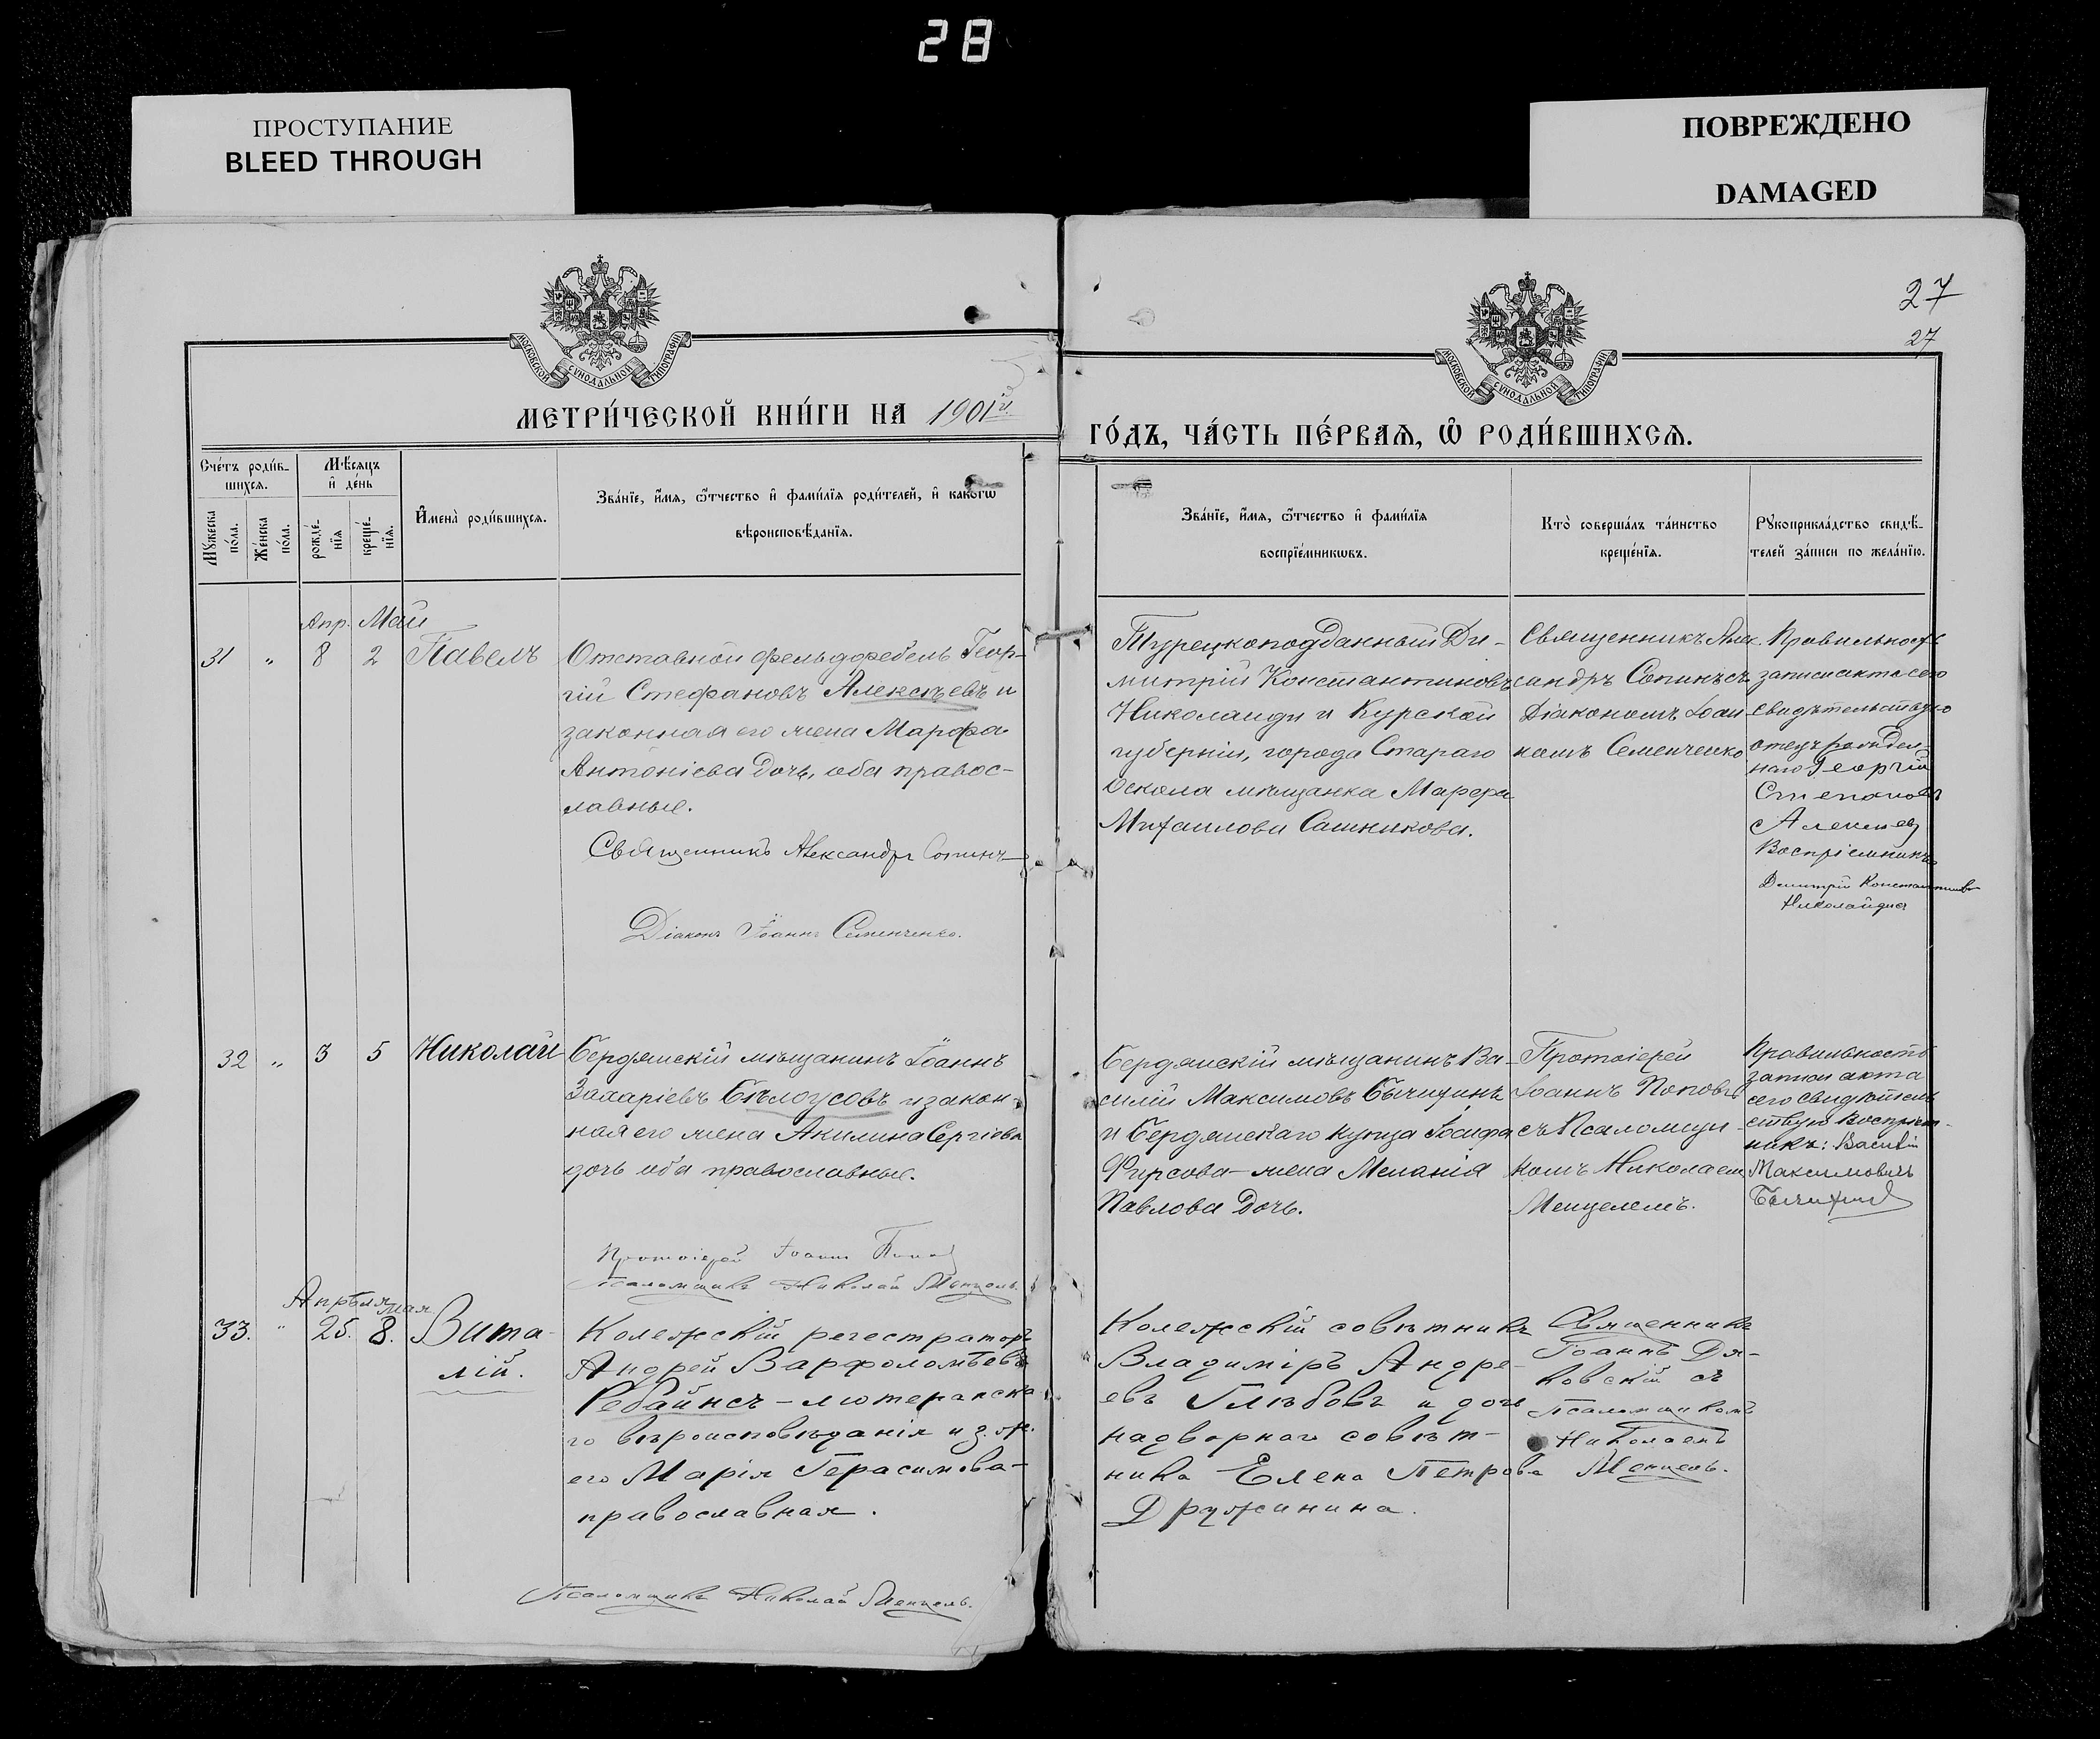 28
ПРОСТУПАНИЕ
BLEED THROUGH
ПОВРЕЖДЕНО
DAMAGED
27
27
МОСКОВСКОЙ СѴНОДАЛЬНОЙ ТИПОГРАФІИ
МОСКОВСКОЙ СѴНОДАЛЬНОЙ ТИПОГРАФІИ
МЕТРИ́ЧЕСКОЙ КНИ́ГИ НА 1901й
ГО́ДЪ, ЧА́СТЬ ПЕ́РВАѦ, Ѽ РОДИ́ВШИХСѦ.
Сче́тъ роди́в-
шихсѧ.
Мѣ́сяцъ
и҆ де́нь
Мꙋжеска
по́ла.
Же́нска
по́ла.
рожде́-
нїѧ
креще́-
нїѧ.
И҆мена̀ роди́вшихсѧ.
Зва́нїе, и҆́мѧ, ѻ҆́тчество и҆ фами́лїѧ роди́телей, и҆ како́гѡ
вѣроисповѣ́данїѧ.
Зва́нїе, и҆́мѧ, ѻ҆́тчество и҆ фами́лїѧ
воспрїе́мникѡвъ.
Кто̀ соверша́лъ та́инство
креще́нїѧ.
Рꙋкоприкла́дство свидѣ́-
телей за́писи по жела́нїю.
Апр. Май
31 " 8 2 Павелъ
Отставной фельдфебель Геор-
гій Стефановъ Алексѣевъ и
законная его жена Марфа
Антоніева дочь, оба правос-
лавные.
Священникъ Александръ Сопинъ
Діаконъ Іоаннъ Семенченко.
Турецкоподданный Ди-
митрій Константиновъ
Николаиди и Курской
губерніи, города Стараго
Оскола мѣщанка Марфа
Михаилова Сашникова.
Священникъ Алек-
сандръ Сопинъ съ
Діакономъ Іоан-
номъ Семенченко
Правильность
записи акта сего
свидѣтельствую
отецъ рожден-
наго Георгій
Степановъ
Алексѣев
Воспріемникъ
Дмитрій Константинов
Николайдис
32 " 3 5 Николай
Бердянскій мѣщанинъ Іоаннъ
Захаріевъ Бѣлоусовъ и закон-
ная его жена Акилина Сергіева
дочь оба православные.
Протоіерей Іоаннъ Поповъ
Псаломщикъ Николай Менцель.
Бердянскій мѣщанинъ Ва-
силій Максимовъ Бычихинъ
и Бердянскаго купца Іосифа
Фирсова жена Меланія
Павлова дочь.
Протоіерей
Іоаннъ Поповъ
съ Псаломщи-
комъ Николаемъ
Менцелемъ.
Правильность
записи акта
сего свидѣтель
ствую Воспріем-
никъ: Василій
Максимовичъ
Бычихинъ
Апрѣля мая
33. " 25. 8. Вита-
лій.
Колежскій регестраторъ
Андрей Варфоломѣевъ
Ребайнсъ - лютеранска
го вѣроисповѣданія и з. ж.
его Марія Герасимова-
православная.
Псаломщикъ Николай Менцель.
Колежскій совѣтникъ
Владиміръ Андре-
евъ Глѣбовъ и дочь
надворнаго совѣт-
ника Елена Петрова
Дружинина.
Священникъ
Іоаннъ Дя-
ковскій съ
Псаломщикомъ
Николаемъ
Менцель.